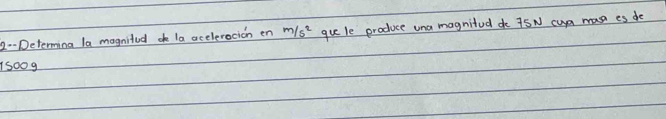 2.- Determina la magnitud de la aceleración en m/s² que le produce una magnitud de 75N cuya masa es de
1500g